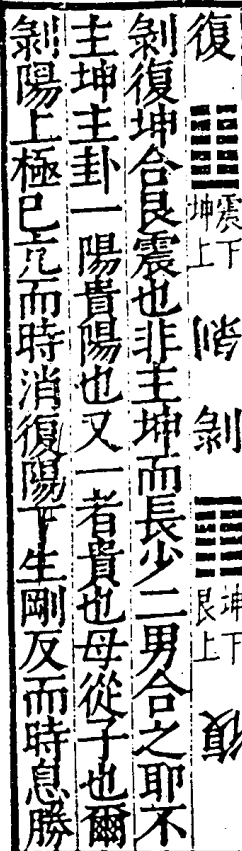 復 ䷗ 震下坤上 剝 剝 ䷖ 坤下艮上 復
剝復坤合艮震也非主坤而長少二男合之耶不
主坤主卦一陽貴陽也又一者貴也母從子也爾
剝陽上極已亢而時消復陽下生剛反而時息勝